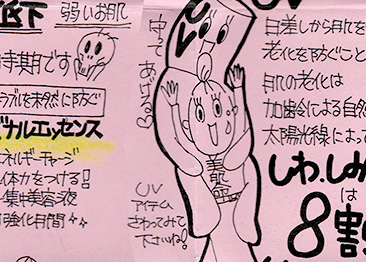 低下 弱いお肌
時期です
ラブルを未然に防ぐ
ナルエッセンス
エネルギーチャージ
体力をつける!
集中美容液
強化月間
守ってあげる♡
UV
美肌
UV
アイテム
さわってみて
下さいね!
UV
日差しから肌を
老化を防ぐこと
肌の老化は
加齢による自然
太陽光線によって
しわ.しみ
は
8割